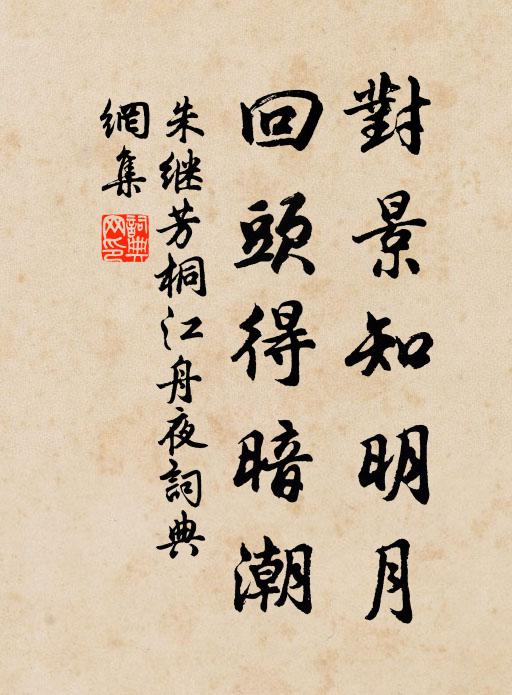 對景知明月
回頭得暗潮
朱继芳桐江舟夜詞典
網集
詞典網印